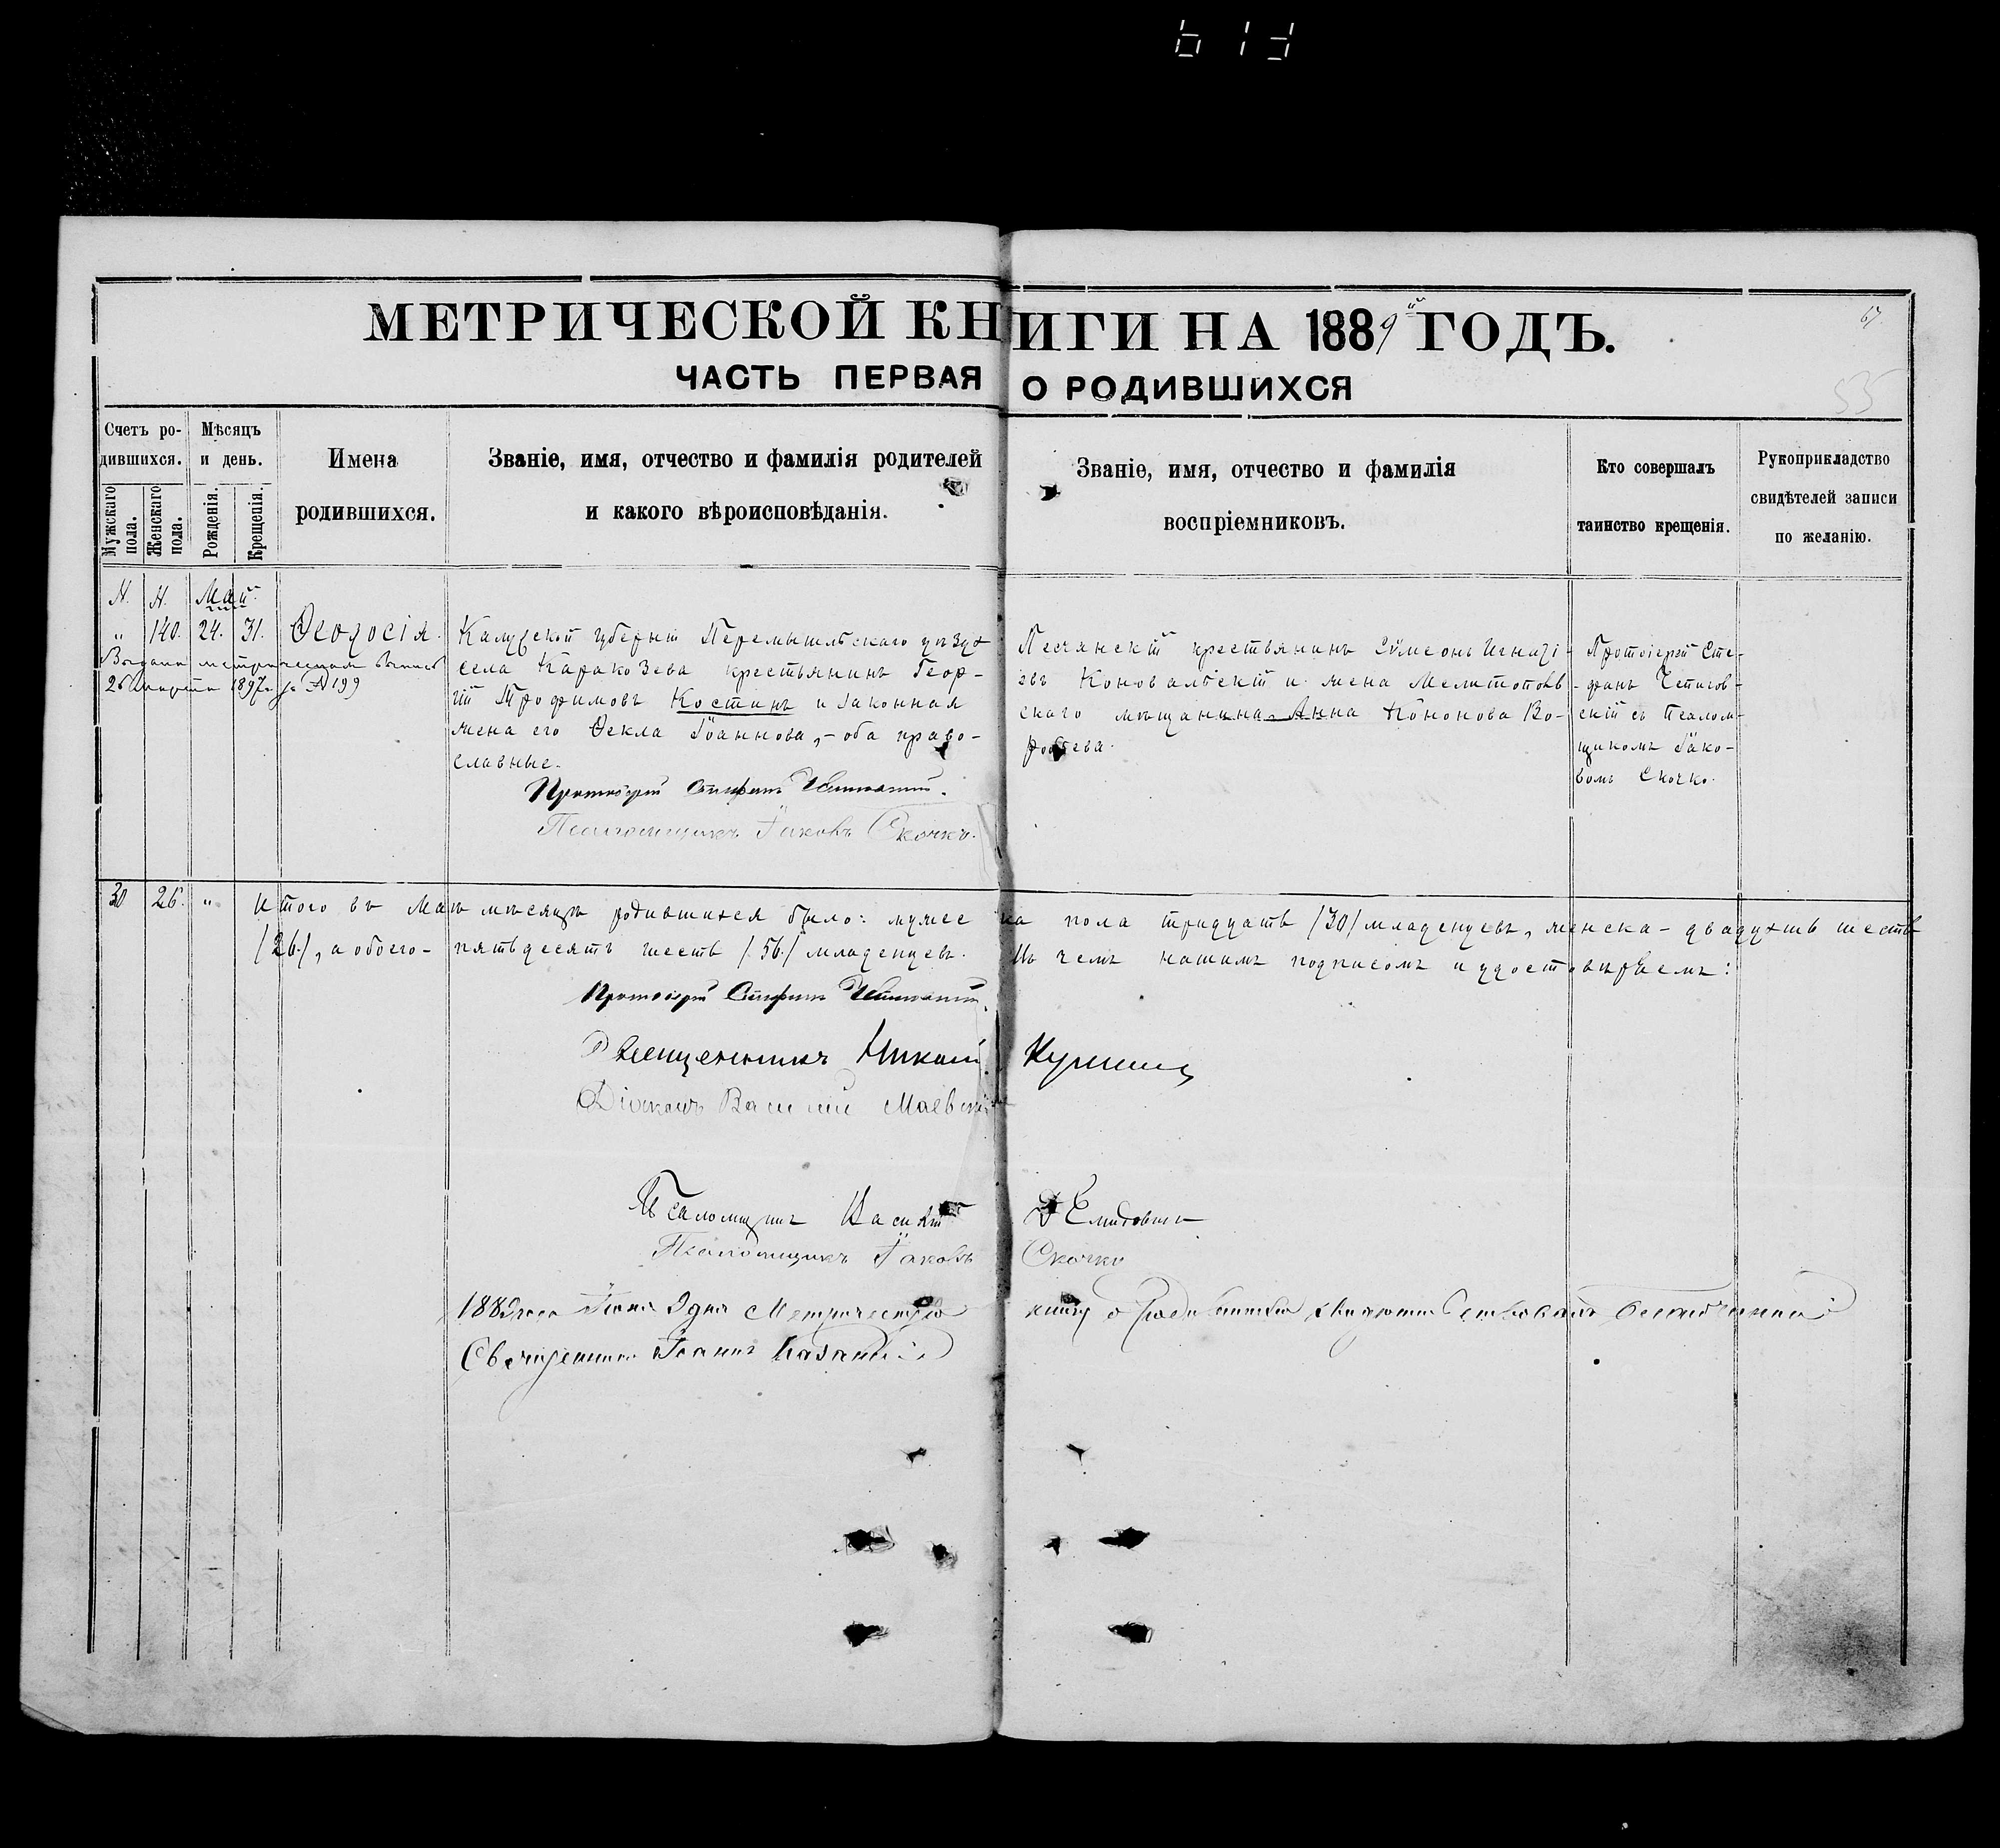 МЕТРИЧЕСКОЙ КНИГИ НА 1889й ГОДЪ.
67
ЧАСТЬ ПЕРВАЯ О РОДИВШИХСЯ
535
Счетъ ро-
дившихся.
Мужскаго пола.
Женскаго пола.
Мѣсяцъ
и день.
Рожденія.
Крещенія.
Имена
родившихся.
Званіе, имя, отчество и фамилія родителей
и какого вѣроисповѣданія.
Званіе, имя, отчество и фамилія
воспріемниковъ.
Кто совершалъ
таинство крещенія.
Рукоприкладство
свидѣтелей записи
по желанію.
Н. Н. Май.
" 140. 24. 31. Ѳеодосія.
Выдана метрическая выпись
26 марта 1897 г. за № 199
Калужской губерніи Перемышльскаго уѣзда
села Каракозева крестьянинъ Геор-
гій Трофимовъ Костинъ и законная
жена его Ѳекла Іоаннова, – оба право-
славные.
Протоіерей Стефанъ
Псаломщикъ Іаковъ Скочко.
Песчанскій крестьянинъ Сѵмеонъ Игнаті-
евъ Коновальскій и жена Мелитополь-
скаго мѣщанина Анна Кононова Во-
робьева.
Протоіерей Сте-
фанъ
скій съ Псалом-
щикомъ Іако-
вомъ Скочко.
30 26. " Итого въ Маѣ мѣсяцѣ родившихся было: мужеска пола тридцать /30/ младенцевъ, женска – двадцать шесть
/26/, а обоего – пятьдесятъ шесть /56/ младенцевъ. Въ чемъ нашимъ подписомъ и удостовѣряемъ:
Протоіерей Стефанъ
Священникъ Николай
Діаконъ Василій Маевскій
Псаломщикъ Василій
Псаломщикъ Іаковъ Скочко
1889 года Іюня дня Метрическую книгу о родившихся свидѣтельствовалъ благочинный
Священникъ Іоаннъ Казанскій